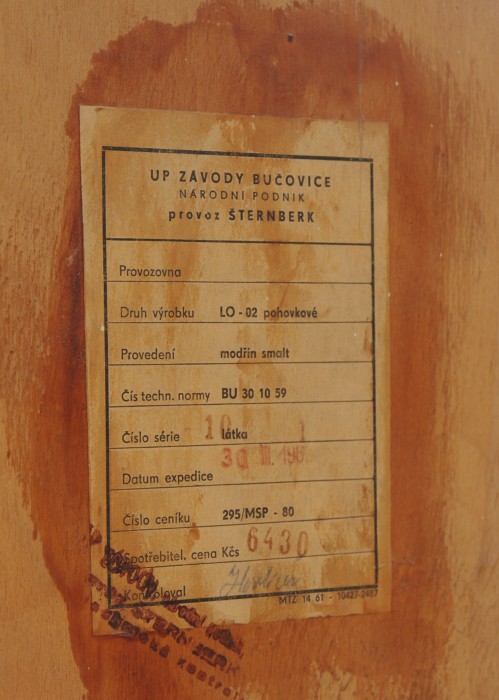 UP ZÁVODY BUČOVICE
NÁRODNÍ PODNIK
provoz ŠTERNBERK
Provozovna
Druh výrobku LO - 02 pohovkové
Provedení modřín smalt
Čís techn. normy BU 30 10 59
Číslo série - 10 látka 1
30 III. 198
Datum expedice
Číslo ceníku 295/MSP - 80
Spotřebitel. cena Kčs 6430
Kontroloval
MTZ 14 61 - 10427-2487
ŠTERNBERK
kontrola